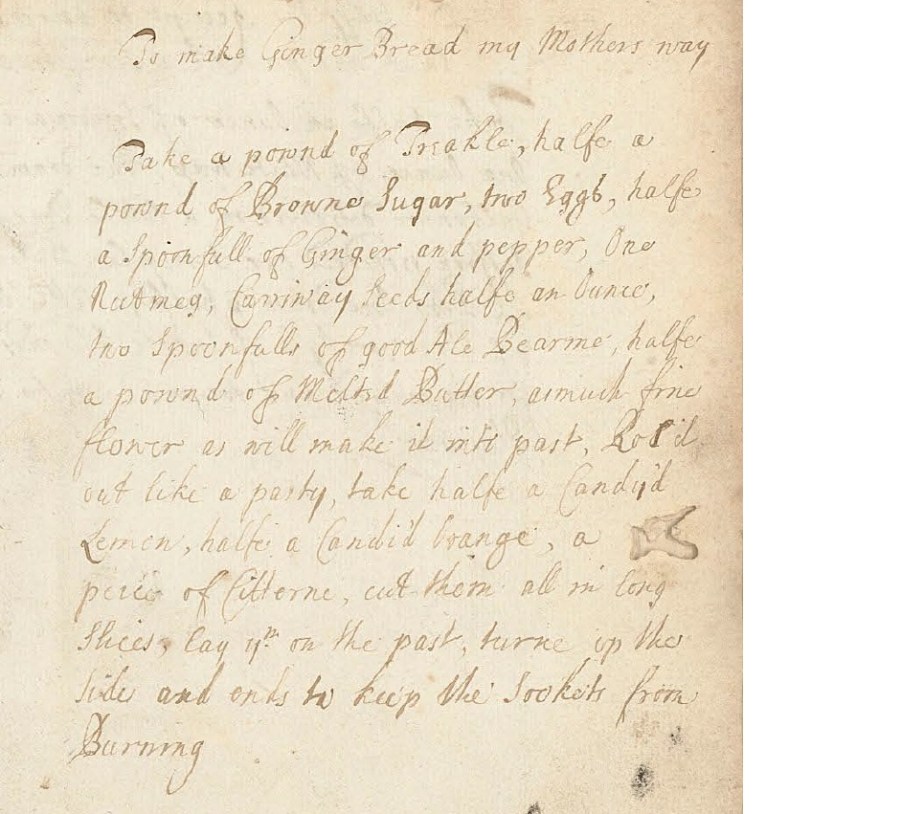 To make Ginger Bread my Mothers way
Take a pownd of Treakle, halfe a
pownd of Browne Sugar, two Eggs, halfe
a Spoonfull of Ginger and pepper, One
Nutmeg, Carriway seeds halfe an Ounce,
two Spoonfulls of good Ale Bearme, halfe
a pownd of Melted Butter, asmuch fine
flower as will make it into past, Role'd
out like a pasty, take halfe a Candy'd
Lemon, halfe a Candi'd Orange, a
peice of Citterne, cut them all in long
Slices, lay ym on the past, turne up the
side and ends to keep the Sockets from
Burning